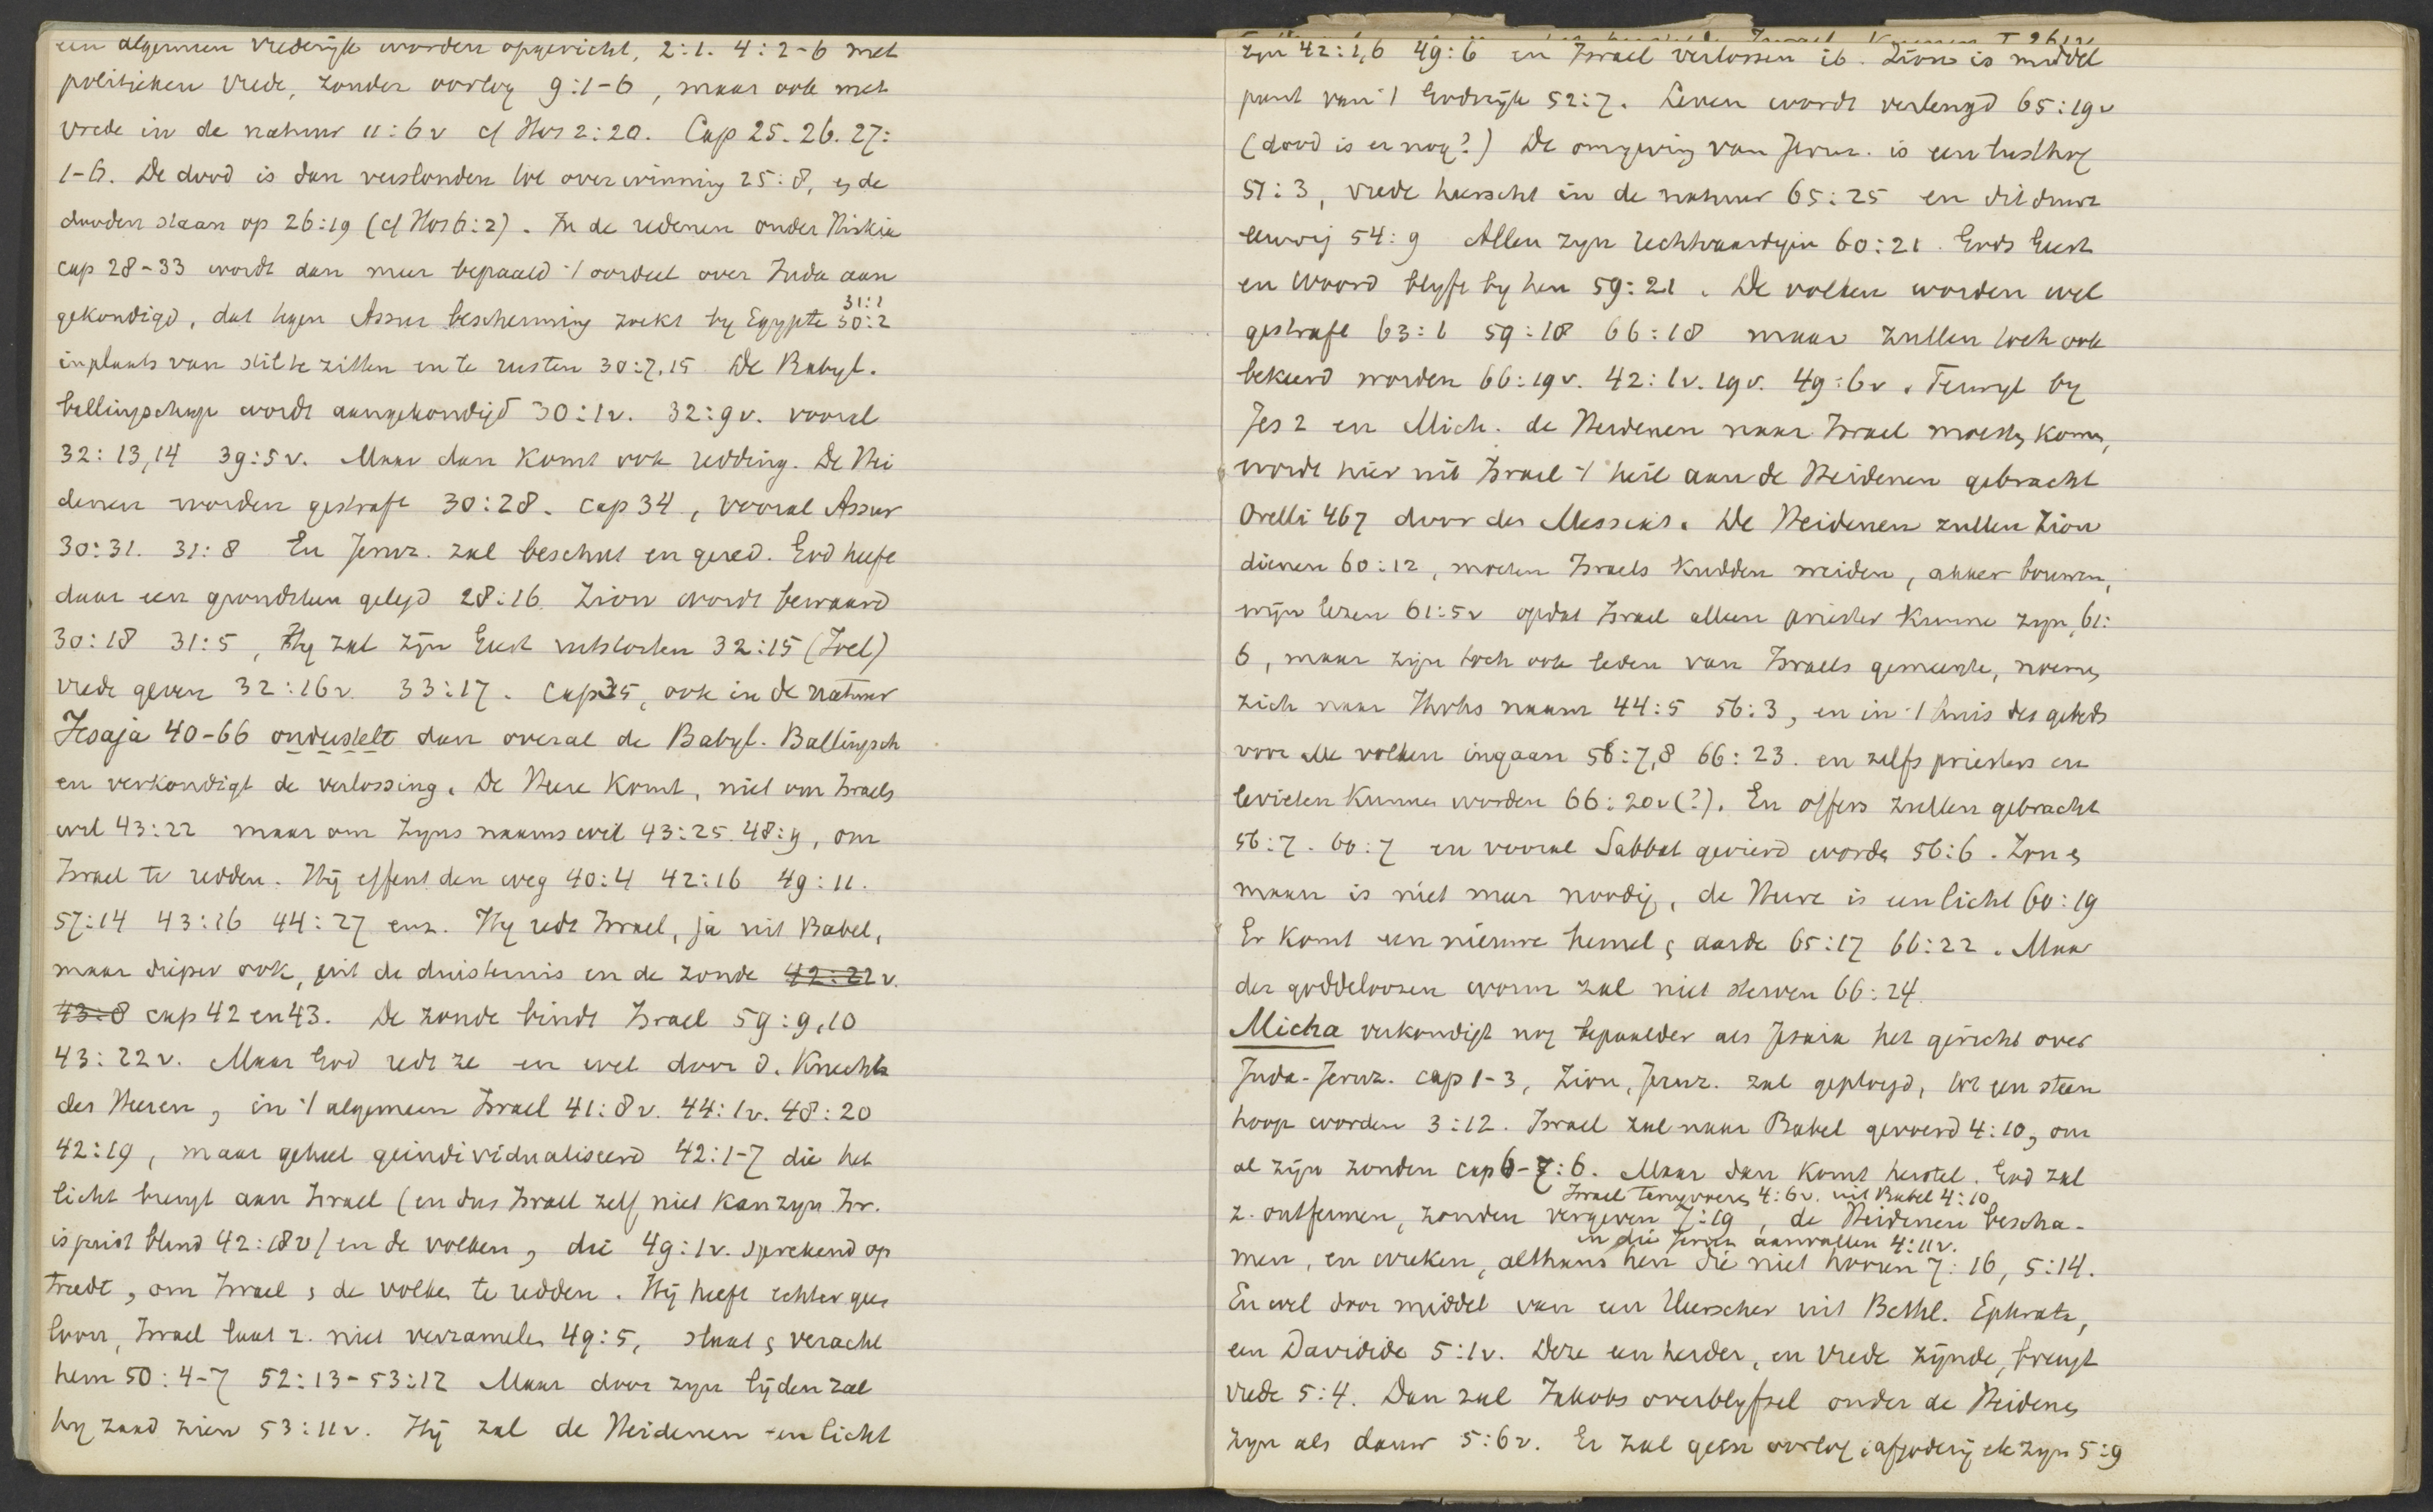 een algemeen vrederijk worden opgericht, 2:1. 4:2-6 met
politieken vrede, zonder oorlog 9:1-6, maar ook met
vrede in de natuur 11:6v cf Hos 2:20. Cap 25. 26. 27:
1-6. De dood is dan verslonden tot overwinning 25:8, en de
dooden staan op 26:19 (cf Hos 6:2). In de redenen onder Hiskia
cap 28-33 wordt dan meer bepaald 't oordeel over Juda aan
gekondigd, dat tegen Assur bescherming zoekt by Egypte 30:2 31:1
inplaats van stil te zitten en te rusten 30:7,15 De Babyl.
ballingschap wordt aangekondigd 30:1v. 32:9v. vooral
32:13,14 39:5v. Maar dan komt ook redding. De Hei
denen worden gestraft 30:28. cap 34, vooral Assur
30:31. 31:8 En Jeruz. zal beschut en gered. God heeft
daar een grondsteen gelegd 28:16. Zion wordt bewaard
30:18 31:5, Hy zal zijn Geest uitstorten 32:15 (Joel)
vrede geven 32:16v. 33:17. Cap 35, ook in de natuur
Jesaja 40-66 onderstelt dan overal de Babyl. Ballingsch
en verkondigt de verlossing. De Heere komt, niet om Israels
wil 43:22 maar om zyns naams wil 43:25. 48:9, om
Israel te redden. Hij effent den weg 40:4 42:16 49:11.
57:14 43:16 44:27 enz. Hy redt Israel, ja uit Babel,
maar dieper ook, uit de duisternis en de zonde 42:22v.
43:8 cap 42 en 43. De zonde bindt Israel 59:9,10
43:22v. Maar God redt ze en wel door d. Knecht
des Heeren, in 't algemeen Israel 41:8v. 44:1v. 48:20
42:19, maar geheel geindividualiseerd 42:1-7 die het
licht brengt aan Israel (en dus Israel zelf niet kan zyn. Isr.
is juist blind 42:18v) en de volken, die 49:1v. sprekend op
treedt, om Israel & de volken te redden. Hij heeft echter geen
loon, Israel laat z. niet verzamelen 49:5, slaat & veracht
hem 50:4-7 52:13-53:12 Maar door zyn lijden zal
hy zaad zien 53:11v. Hij zal de Heidenen een licht
zyn 42:1,6 49:6 en Israel verlossen ib. Zion is middel
punt van 't Godsrijk 52:7. Leven wordt verlengd 65:19v
(dood is er nog?) De omgeving van Jeruz. is een lusthof
51:3, vrede heerscht in de natuur 65:25 en dit duurt
eeuwig 54:9 Allen zyn rechtvaardigen 60:21. Gods Geest
en Woord blyft by hen 59:21. De volken worden wel
gestraft 63:6 59:18 66:18 maar zullen toch ook
bekeerd worden 66:19v. 42:1v. 19v. 49:6v. Terwyl by
Jes 2 en Mich. de Heidenen naar Israel moesten komen,
wordt hier uit Israel 't heil aan de Heidenen gebracht
Orelli 467 door den Messias. De Heidenen zullen Zion
dienen 60:12, moeten Israels kudden weiden, akker bouwen,
wijn lezen 61:5v opdat Israel alleen priester kunne zyn, 61:
6, maar zijn toch ook leden van Israels gemeente, noemen
zich naar Jhvhs naam 44:5 56:3, en in 't huis des gebeds
voor alle volken ingaan 56:7,8 66:23. en zelfs priesters en
levieten kunnen worden 66:20v(?). En offers zullen gebracht
56:7. 60:7 en vooral Sabbat gevierd worden 56:6. Zon &
maan is niet meer noodig, de Heere is een licht 60:19
Er komt een nieuwe hemel & aarde 65:17 66:22. Maar
der goddeloozen worm zal niet sterven 66:24.
Micha verkondigt nog bepaalder als Jesaia het gericht over
Juda-Jeruz. cap 1-3, Zion, Jeruz. zal geploegd, tot een steen
hoop worden 3:12. Israel zal naar Babel gevoerd 4:10, om
al zijn zonden cap 6-7:6. Maar dan komt herstel. God zal
Israel terugvoeren 4:6v. uit Babel 4:10
z. ontfermen, zonden vergeven 7:19, de Heidenen bescha-
en die Jeruz. aanvallen 4:11v.
men, en wreken, althans hen die niet hooren 7:16, 5:14.
En wel door middel van een Heerscher uit Bethl. Ephrata,
een Davidide 5:1v. Deze een herder, en vrede zijnde, brengt
vrede 5:4. Dan zal Jakobs overblyfsel onder de Heidenen
zyn als dauw 5:6v. Er zal geen oorlog & afgoderij etc zyn 5:9